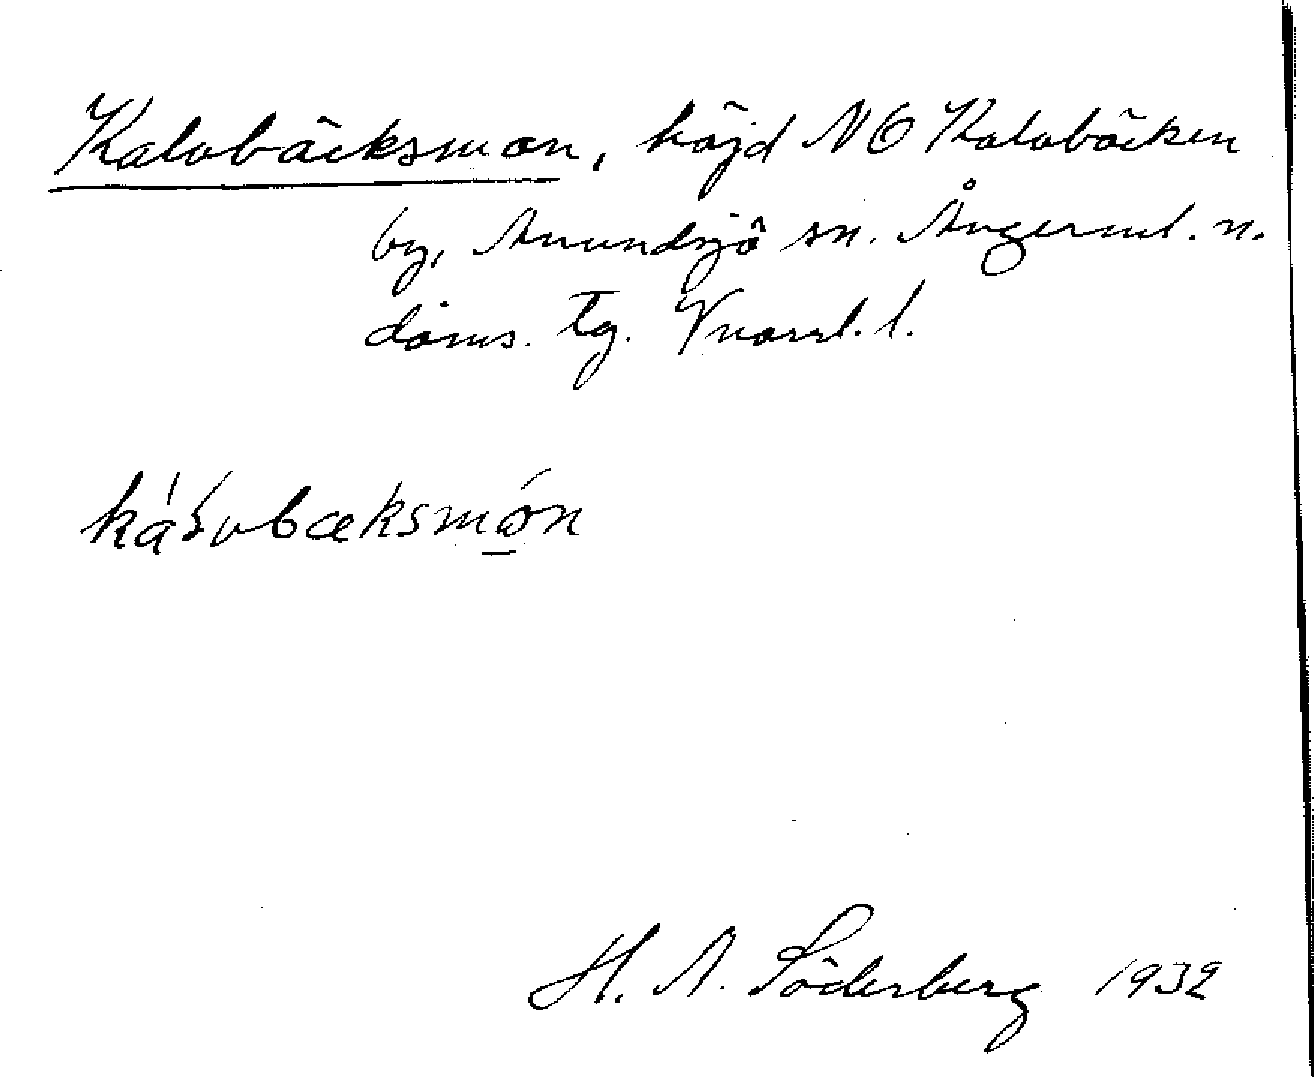 Kalvbäcksmon, höjd NO Kalvbäcken
by, Anundsjö sn. Ångerml. n.
doms. tg. Vnorrl. l.
kálvbæksmón
H. A. Söderberg 1932